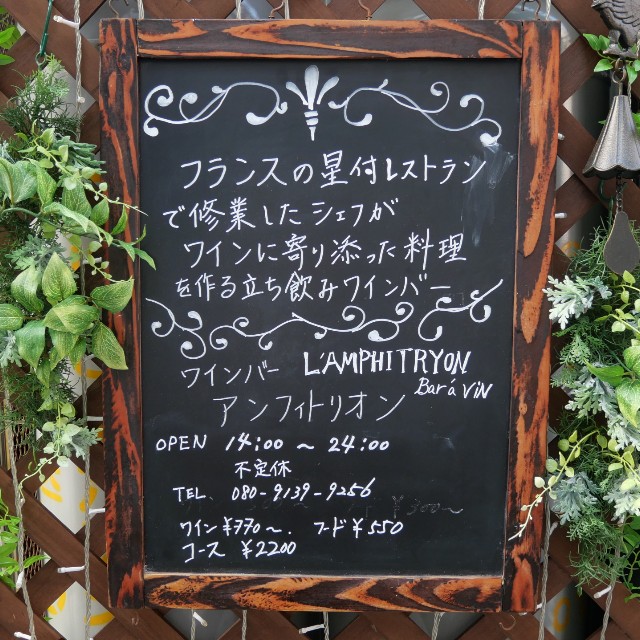 フランスの星付レストラン
で修業したシェフが
ワインに寄り添った料理
を作る立ち飲みワインバー
ワインバー L'AMPHITRYON
Bar á ViN
アンフィトリオン
OPEN 14:00 ～ 24:00
不定休
TEL. 080-9139-9256
¥300～
ワイン¥770～. フード¥550
コース ¥2200